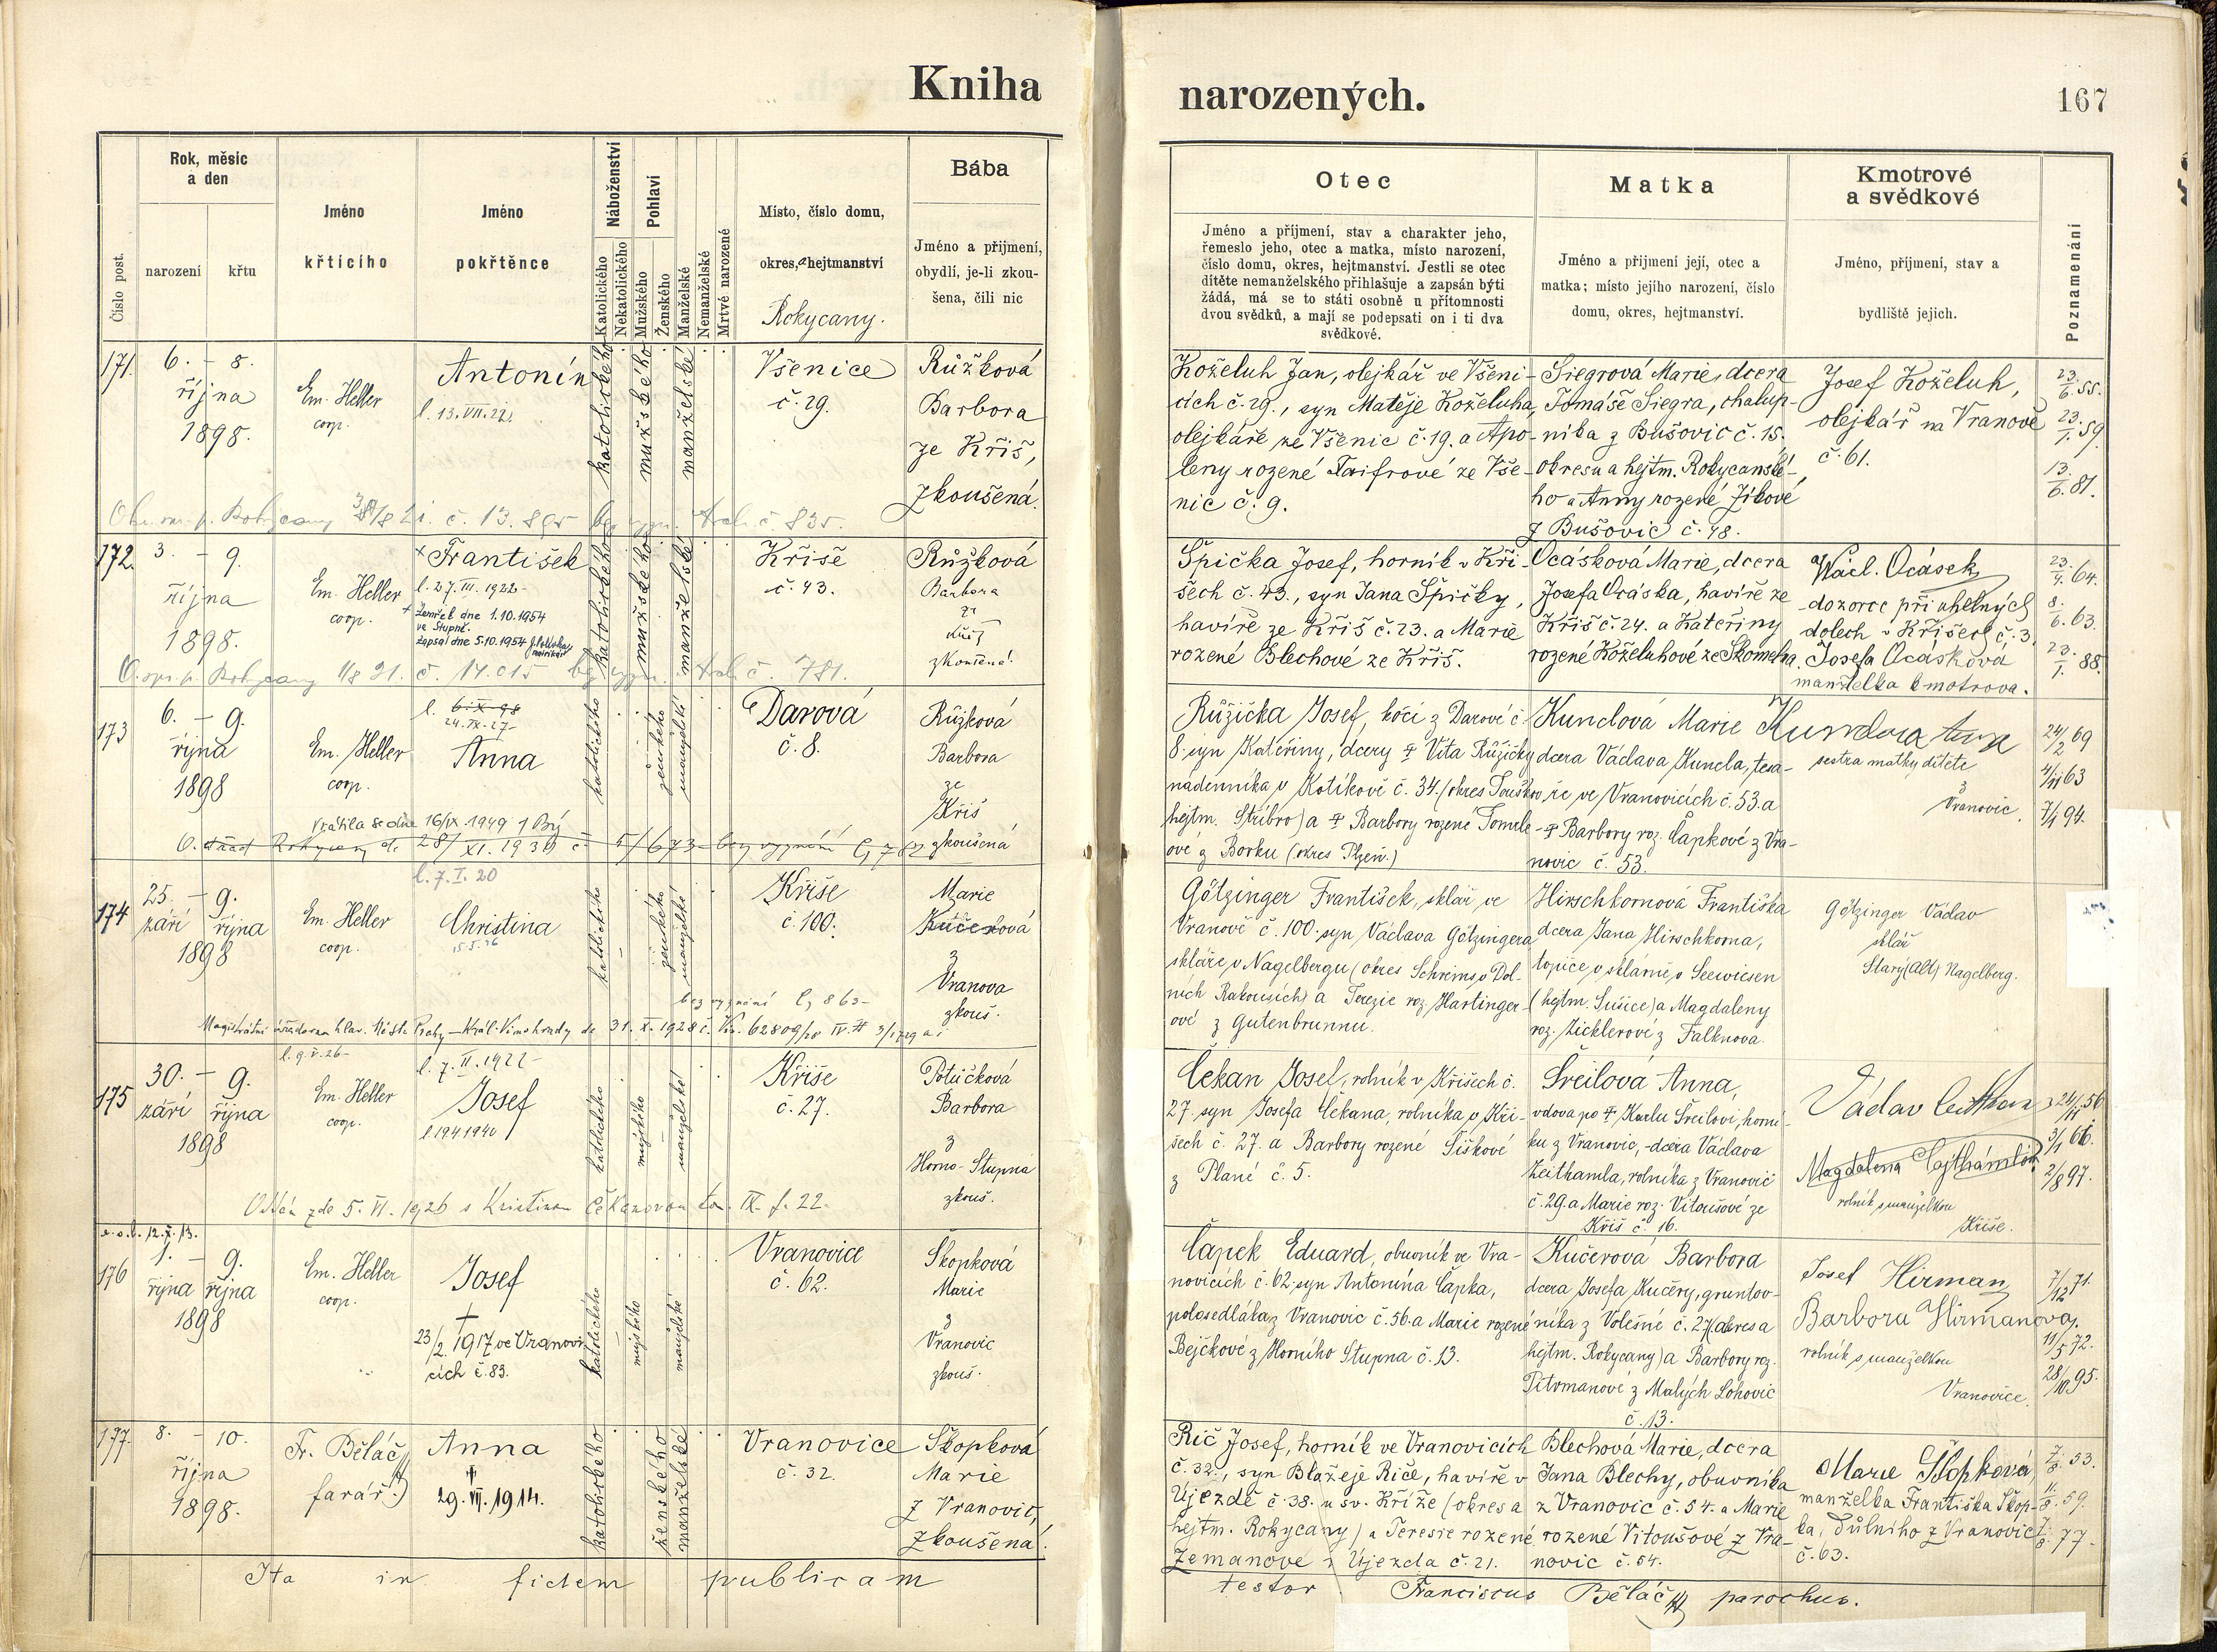 Kniha
narozených.
167
Číslo post.
Rok, měsíc
a den
narození
křtu
Jméno
křtícího
Jméno
pokřtěnce
Náboženství
Katolického
Nekatolického
Pohlaví
Mužského
Ženského
Manželské
Nemanželské
Mrtvé narozené
Místo, číslo domu,
okres, hejtmanství
Rokycany.
Bába
Jméno a přijmení,
obydlí, je-li zkou-
šena, čili nic
Otec
Jméno a příjmení, stav a charakter jeho,
řemeslo jeho, otec a matka, místo narození,
číslo domu, okres, hejtmanství. Jestli se otec
dítěte nemanželského přihlašuje a zapsán býti
žádá, má se to státi osobně u přítomnosti
dvou svědků, a mají se podepsati on i ti dva
svědkové.
Matka
Jméno a přijmení její, otec a
matka; místo jejího narození, číslo
domu, okres, hejtmanství.
Kmotrové
a svědkové
Jméno, příjmení, stav a
bydliště jejich.
Poznamenání
171.
6. – 8.
října
1898.
Em. Heller
coop.
Antonín
l. 13. VII. 22.
katolického
mužského
manželské
Všenice
č. 29.
Růžková
Barbora
ze Kříš,
zkoušená.
Koželuh Jan, olejkář ve Všeni-
cích č. 29., syn Matěje Koželuha,
olejkáře ze Všenic č. 19. a Apo-
leny rozené Taifrové ze Vše-
nic č. 9.
Siegrová Marie, dcera
Tomáše Siegra, chalup-
níka z Bušovic č. 15.
okresu a hejtm. Rokycanské-
ho a Anny rozené Jíkové
z Bušovic č. 48.
Josef Koželuh,
olejkář na Vranově
č. 61.
23./6. 55.
23./1. 59.
13./6. 81.
Rokycany č. 13.895 bez vyzn. č. 835.
172.
3. – 9.
října
1898.
Em. Heller
coop.
František
l. 27. III. 1922
+ Zemřel dne 1.10.1954
ve Stupně.
Zapsal dne 5.10.1954
matrikář
katolického
mužského
manželské
Kříše
č. 43.
Růžková
Barbora
ze
Kříš
zkoušená.
Špička Josef, horník v Kří-
šech č. 43., syn Jana Špičky,
havíře ze Kříš č. 23. a Marie
rozené Blechové ze Kříš.
Ocásková Marie, dcera
Josefa Ocáska, havíře ze
Kříš č. 24. a Kateřiny
rozené Koželuhové ze Skomelna.
Václ. Ocásek
dozorce při uhelných
dolech v Kříšech č. 3.
Josefa Ocásková
manželka kmotrova.
23./4. 64.
8./6. 63.
23./1. 88.
Rokycany 11/8 21. č. 14.015 bez vyzn. č. 781.
173
6. – 9.
října
1898
Em. Heller
coop.
24. IX. 27
Anna
katolického
ženského
manželské
Darová
č. 8.
Růžková
Barbora
ze
Kříš
zkoušená
Růžička Josef, kočí z Darové č.
8. syn Kateřiny, dcery † Víta Růžičky
nádenníka v Kotíkově č. 34. (okres Touškov,
hejtm. Stříbro) a † Barbory rozené Tomeše-
ové z Borku (okres Plzeň.)
Kunclová Marie
dcera Václava Kuncla, tesa-
ře ve Vranovicích č. 53. a
† Barbory roz. Čapkové z Vra-
novic č. 53.
sestra matky dítěte
z
Vranovic.
24/2 69
4/11 63
7/1 94.
Vrátila se dne 16/IX. 1949
28/XI. 1930 č. 5/673 bez vyznání
l. 7. I. 20
174
25. – 9.
září října
1898
Em. Heller
coop.
Christina
15.5.26
katolického
ženského
manželské
Kříše
č. 100.
Marie
Kučerová
z
Vranova
zkouš.
Götzinger František, sklář ve
Vranově č. 100. syn Václava Götzingera
skláře v Nagelbergu (okres Schrems v Dol-
ních Rakousích) a Terezie roz. Hartinger-
ové z Gutenbrunnu.
Hirschkornová Františka
dcera Jana Hirschkorna,
topiče v sklárně v Seewiesen
(hejtm. Sušice) a Magdaleny
roz. Zicklerové z Falknova.
Götzinger Václav
sklář
Starý (Alt) Nagelberg.
bez vyznání č. 863
Magistrátní úřadovna hlav. města Prahy – Král. Vinohrady de 31. X. 1928 č.
l. 9. V. 26
175
30. – 9.
září října
1898
Em. Heller
coop.
l. 7. II. 1922
Josef
l 19 4 1940
katolického
mužského
manželské
Kříše
č. 27.
Potůčková
Barbora
z
Horno-Stupna
zkouš.
Čekan Josef, rolník v Kříšech č.
27. syn Josefa Čekana, rolníka v Kří-
šech č. 27. a Barbory rozené Šiškové
z Plané č. 5.
Šreilová Anna,
vdova po † Karlu Šreilovi, horní-
ku z Vranovic, dcera Václava
Zeithamla, rolníka z Vranovic
č. 29. a Marie roz. Vitoušové ze
Kříš č. 16.
Magdalena
rolník s manželkou
Kříše.
3/1 66.
2/8 97.
Oddán zde 5. VI. 1926 s Kristinou Čekanovou tom. IX. f. 22.
12. X. 13.
176
1. – 9.
října října
1898
Em. Heller
coop.
Josef
+
23/2. 1917 ve Vranovi-
cích č. 83.
katolického
mužského
manželské
Vranovice
č. 62.
Skopková
Marie
z
Vranovic
zkouš.
Čapek Eduard, obuvník ve Vra-
novicích č. 62. syn Antonína Čapka,
polosedláka z Vranovic č. 56. a Marie rozené
Bejčkové z Horního Stupna č. 13.
Kučerová Barbora
dcera Josefa Kučery, gruntov-
níka z Volešné č. 27 (okres a
hejtm. Rokycany) a Barbory roz.
Pitrmanové z Malých Lohovic
č. 13.
Josef Hirman
Barbora Hirmanova.
rolník s manželkou
Vranovice.
7/12 71.
11/5 72.
28/10 95.
177.
8. – 10.
října
1898.
Fr. Běláč,
farář.
Anna
†
29. VII. 1914.
katolického
ženského
manželské
Vranovice
č. 32.
Skopková
Marie
z Vranovic,
zkoušená.
Říč Josef, horník ve Vranovicích
č. 32., syn Blažeje Říče, havíře v
Újezdě č. 38. u sv. Kříže (okres a
hejtm. Rokycany) a Teresie rozené
Zemanové z Újezda č. 21.
Blechová Marie, dcera
Jana Blechy, obuvníka
z Vranovic č. 54. a Marie
rozené Vitoušové z Vra-
novic č. 54.
Marie Skopková
manželka Františka Skop-
ka, důlního z Vranovic
č. 63.
53.
59.
77.
Ita in fidem publicam
testor Franciscus Běláč parochus.